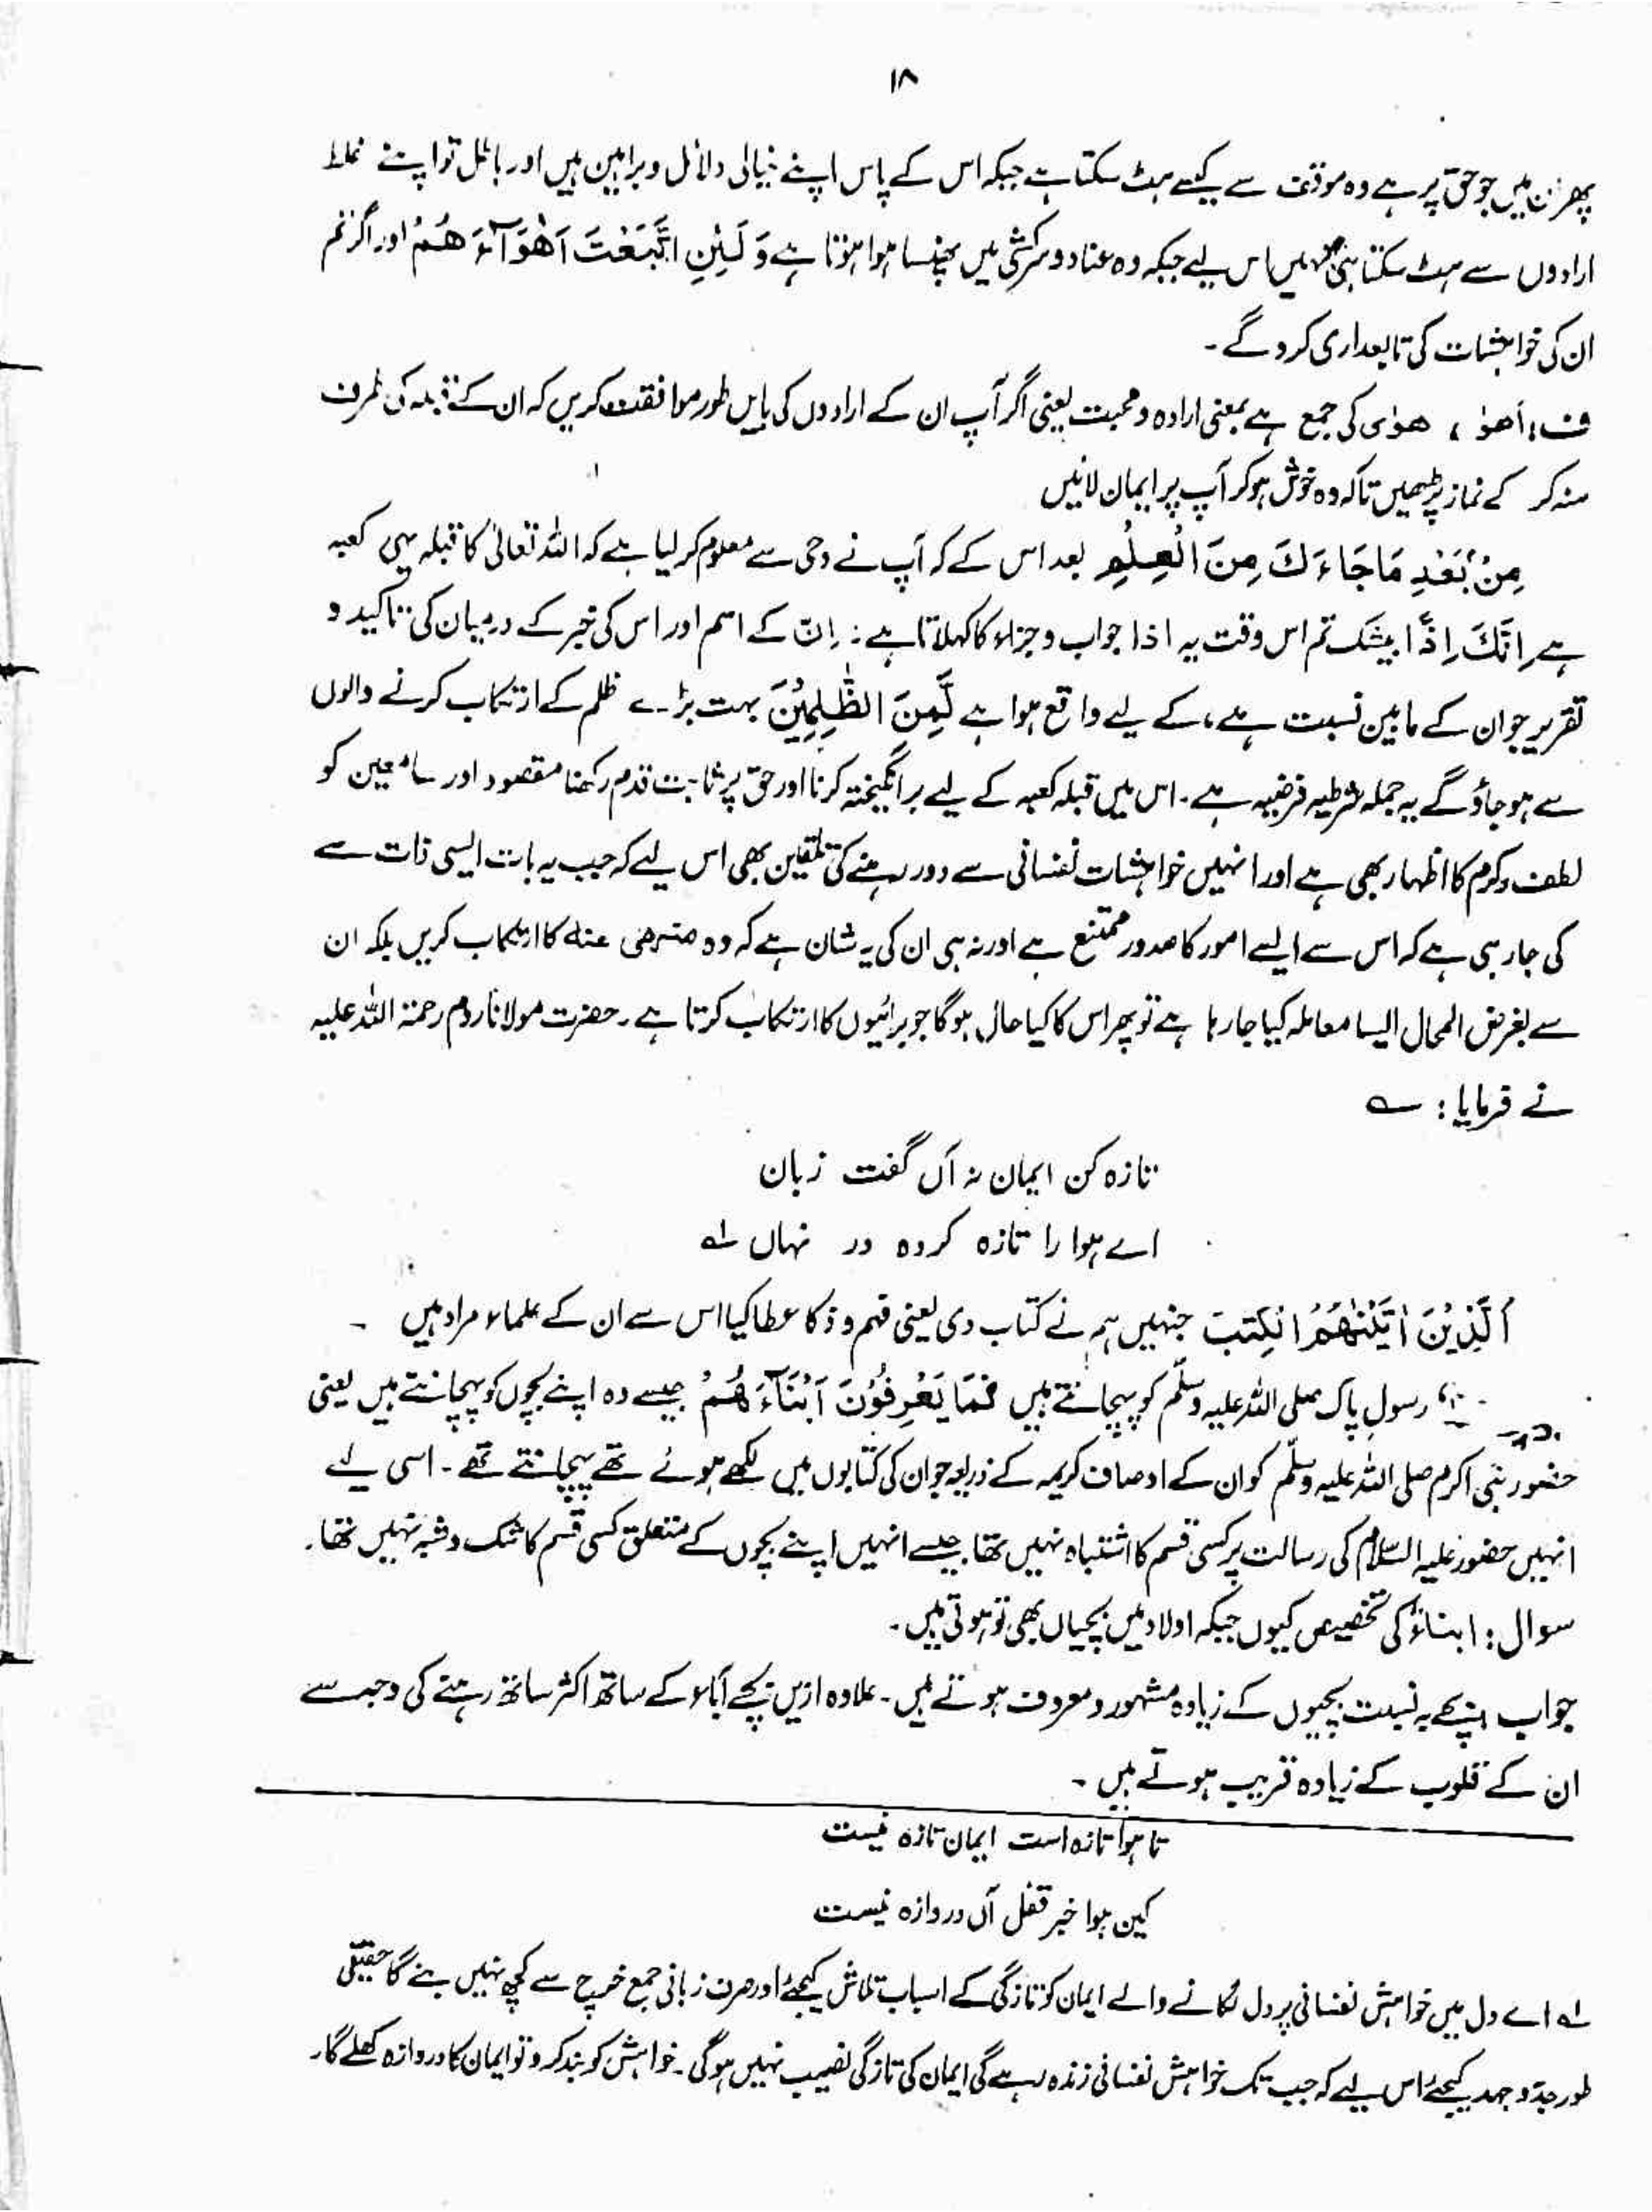 ۱۸
پھر ان میں جو حق پر ہے وہ موقف سے کیسے ہٹ سکتا ہے جبکہ اس کے پاس اپنے خیالی دلائل و براہین ہیں اور باطل تو اپنے غلط
ارادوں سے ہٹ سکتا ہی نہیں اس لیے جبکہ وہ عناد و سرکشی میں پھنسا ہوا ہوتا ہے وَ لَئِنِ اتَّبَعْتَ اَهْوَآءَ هُمْ اور اگر تم
ان کی خواہشات کی تابعداری کرو گے ۔
ف : أھواٰ ، ھوٰی کی جمع ہے بمعنی ارادہ و محبت یعنی اگر آپ ان کے ارادوں کی بایں طور موافقت کریں کہ ان کے قبلہ کی طرف
منہ کر کے نماز پڑھیں تاکہ وہ خوش ہو کر آپ پر ایمان لائیں
مِنْۢ بَعْدِ مَا جَاءَكَ مِنَ الْعِلْمِ بعد اس کے کہ آپ نے وحی سے معلوم کر لیا ہے کہ اللہ تعالیٰ کا قبلہ یہی کعبہ
ہے اِنَّكَ اِذًا بیشک تم اس وقت یہ اذا جواب و جزاء کا کہلاتا ہے : اِنّ کے اسم اور اس کی خبر کے درمیان کی تاکید و
تقریر جو ان کے مابین نسبت ہے ، کے لیے واقع ہوا ہے لَّمِنَ الظّٰلِمِيْنَ بہت بڑے ظلم کے ارتکاب کرنے والوں
سے ہو جاؤ گے یہ جملہ شرطیہ فرضیہ ہے ۔ اس میں قبلہ کعبہ کے لیے برانگیختہ کرنا اور حق پر ثابت قدم رکھنا مقصود اور سامعین کو
لطف و کرم کا اظہار بھی ہے اور انہیں خواہشات نفسانی سے دور رہنے کی تلقین بھی اس لیے کہ جب یہ بات ایسی ذات سے
کی جا رہی ہے کہ اس سے ایسے امور کا صدور ممتنع ہے اور نہ ہی ان کی یہ شان ہے کہ وہ منہی عنہ کا ارتکاب کریں بلکہ ان
سے بفرض المحال ایسا معاملہ کیا جا رہا ہے تو پھر اس کا کیا حال ہوگا جو برائیوں کا ارتکاب کرتا ہے ۔ حضرت مولانا روم رحمۃ اللہ علیہ
نے فرمایا : ؎
تازہ کن ایمان نہ آں گفت زبان
اے ہوا را تازہ کردہ در نہاں لہ
اَلَّذِيْنَ اٰتَيْنٰهُمُ الْكِتٰبَ جنہیں ہم نے کتاب دی یعنی فہم و ذکا عطا کیا اس سے ان کے علماء مراد ہیں ۔
رسول پاک صلی اللہ علیہ وسلّم کو پہچانتے ہیں كَمَا يَعْرِفُوْنَ اَبْنَآءَ هُمْ جیسے وہ اپنے بچوں کو پہچانتے ہیں یعنی
حضور نبی اکرم صلی اللہ علیہ وسلّم کو ان کے اوصاف کریمہ کے ذریعہ جو ان کی کتابوں میں لکھے ہوئے تھے پہچانتے تھے ۔ اسی لیے
انہیں حضور علیہ السّلام کی رسالت پر کسی قسم کا اشتباہ نہیں تھا جیسے انہیں اپنے بچوں کے متعلق کسی قسم کا شک و شبہ نہیں تھا ۔
سوال : ابناء کی تخصیص کیوں جبکہ اولاد میں بچیاں بھی تو ہوتی ہیں ۔
جواب : بچے بہ نسبت بچیوں کے زیادہ مشہور و معروف ہوتے ہیں ۔ علاوہ ازیں بچے آباء کے ساتھ اکثر ساتھ رہنے کی وجہ سے
ان کے قلوب کے زیادہ قریب ہوتے ہیں ۔
تا ہوا تازہ است ایمان تازہ نیست
کین ہوا خبر قفل آں دروازہ نیست
لہ اے دل میں خواہش نفسانی پر دل لگانے والے ایمان کو تازگی کے اسباب تلاش کیجئے اور صرف زبانی جمع خرچ سے کچھ نہیں بنے گا حقیقی
طور جدّ و جہد کیجئے اس لیے کہ جب تک خواہش نفسانی زندہ رہے گی ایمان کی تازگی نصیب نہیں ہوگی ۔ خواہش کو بند کرو تو ایمان کا دروازہ کھلے گا ۔